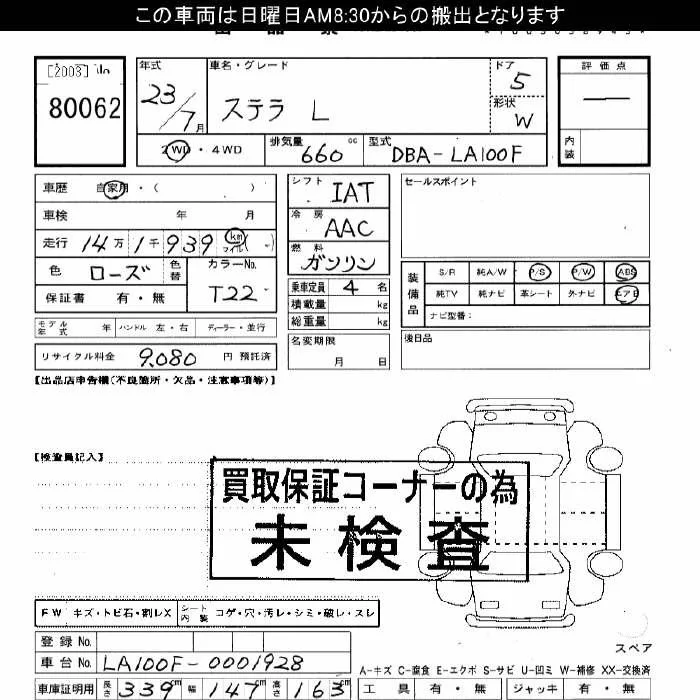 この車両は日曜日AM8:30からの搬出となります
[2003] No
80062
年式
23/7月
車名・グレード
ステラ L
ドア
5
形状
W
評価点
—
内装
2WD・4WD
排気量 660 cc
型式 DBA-LA100F
車歴 自家用・( )
車検 年 月
走行 14万1千939 km マイル( )
色 ローズ 色替
カラーNo. T22
保証書 有・無
モデル年式 年 ハンドル 左・右 ディーラー・並行
リサイクル料金 9,080 円 預託済
シフト IAT
冷房 AAC
燃料 ガソリン
乗車定員 4 名
積載量 kg
総重量 kg
名変期限
月 日
セールスポイント
装備品
S/R 純A/W P/S P/W ABS
純TV 純ナビ 革シート 外ナビ エアB
ナビ型番:
後日品
【出品店申告欄(不良箇所・欠品・注意事項等)】
【検査員記入】
買取保証コーナーの為
未検査
FW キズ・トビ石・割レX
シート内装 コゲ・穴・汚レ・シミ・破レ・スレ
登録No.
車台No. LA100F-0001928
車庫証明用 長さ 339cm 幅 147cm 高さ 163cm
スペア
A-キズ C-腐食 E-エクボ S-サビ U-凹ミ W-補修 XX-交換済
工具 有・無 ジャッキ 有・無